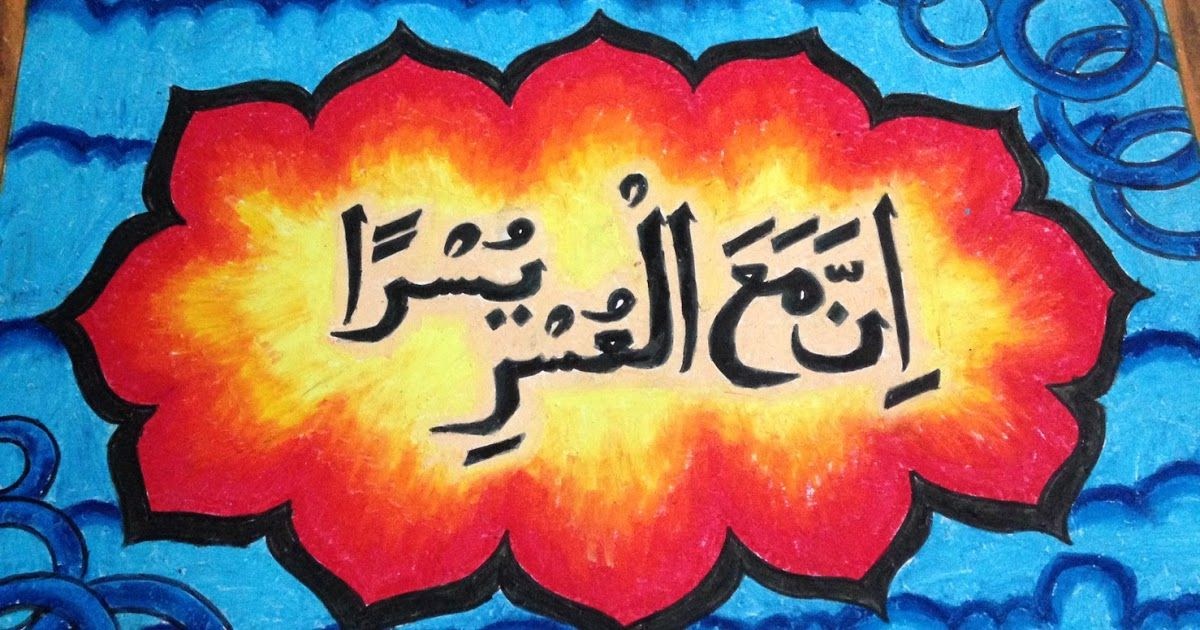 اِنَّ مَعَ الْعُسْرِ يُسْرًا